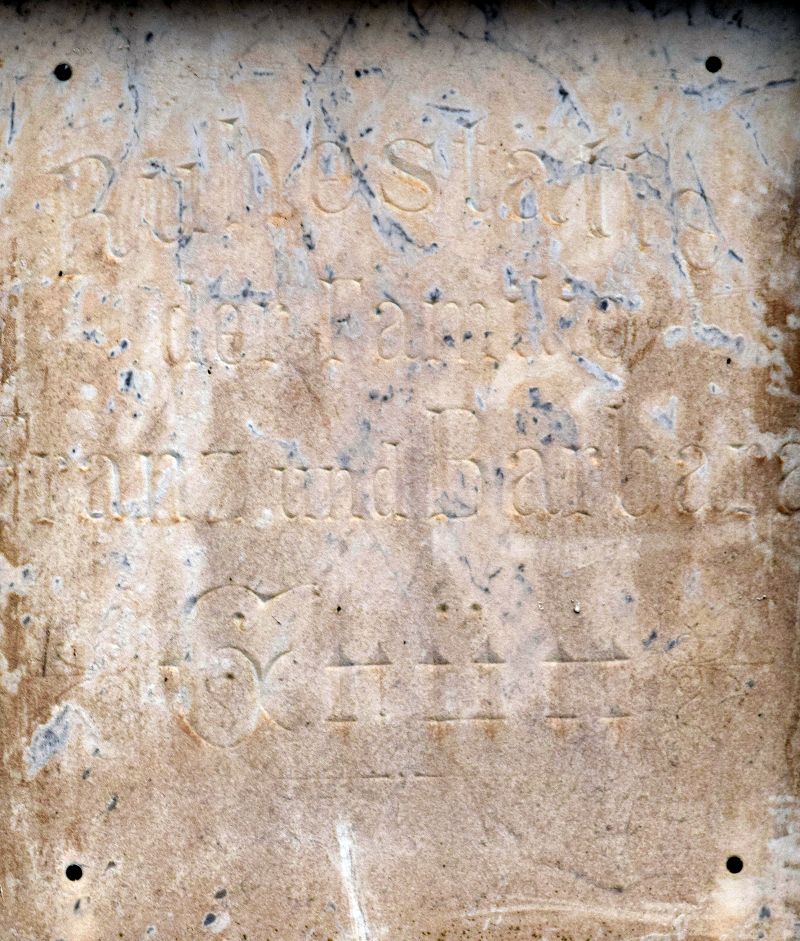 Ruhestätte
der Familie
Franz und Barbara